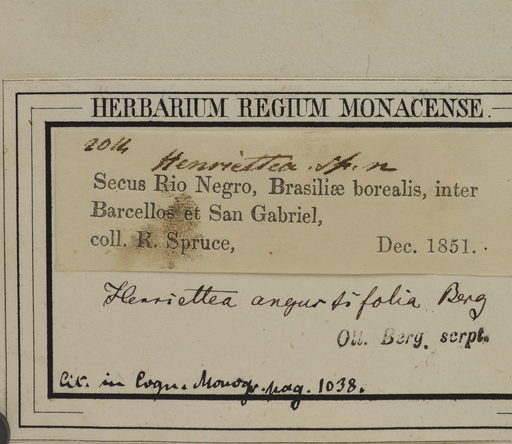 HERBARIUM REGIUM MONACENSE.
2014
Henriettea sp. n
Secus Rio Negro, Brasiliæ borealis, inter
Barcellos et San Gabriel,
coll. R. Spruce, Dec. 1851.
Henriettea angustifolia Berg
Ott. Berg. scrpt.
Cit. in Cogn. Monogr. pag. 1038.